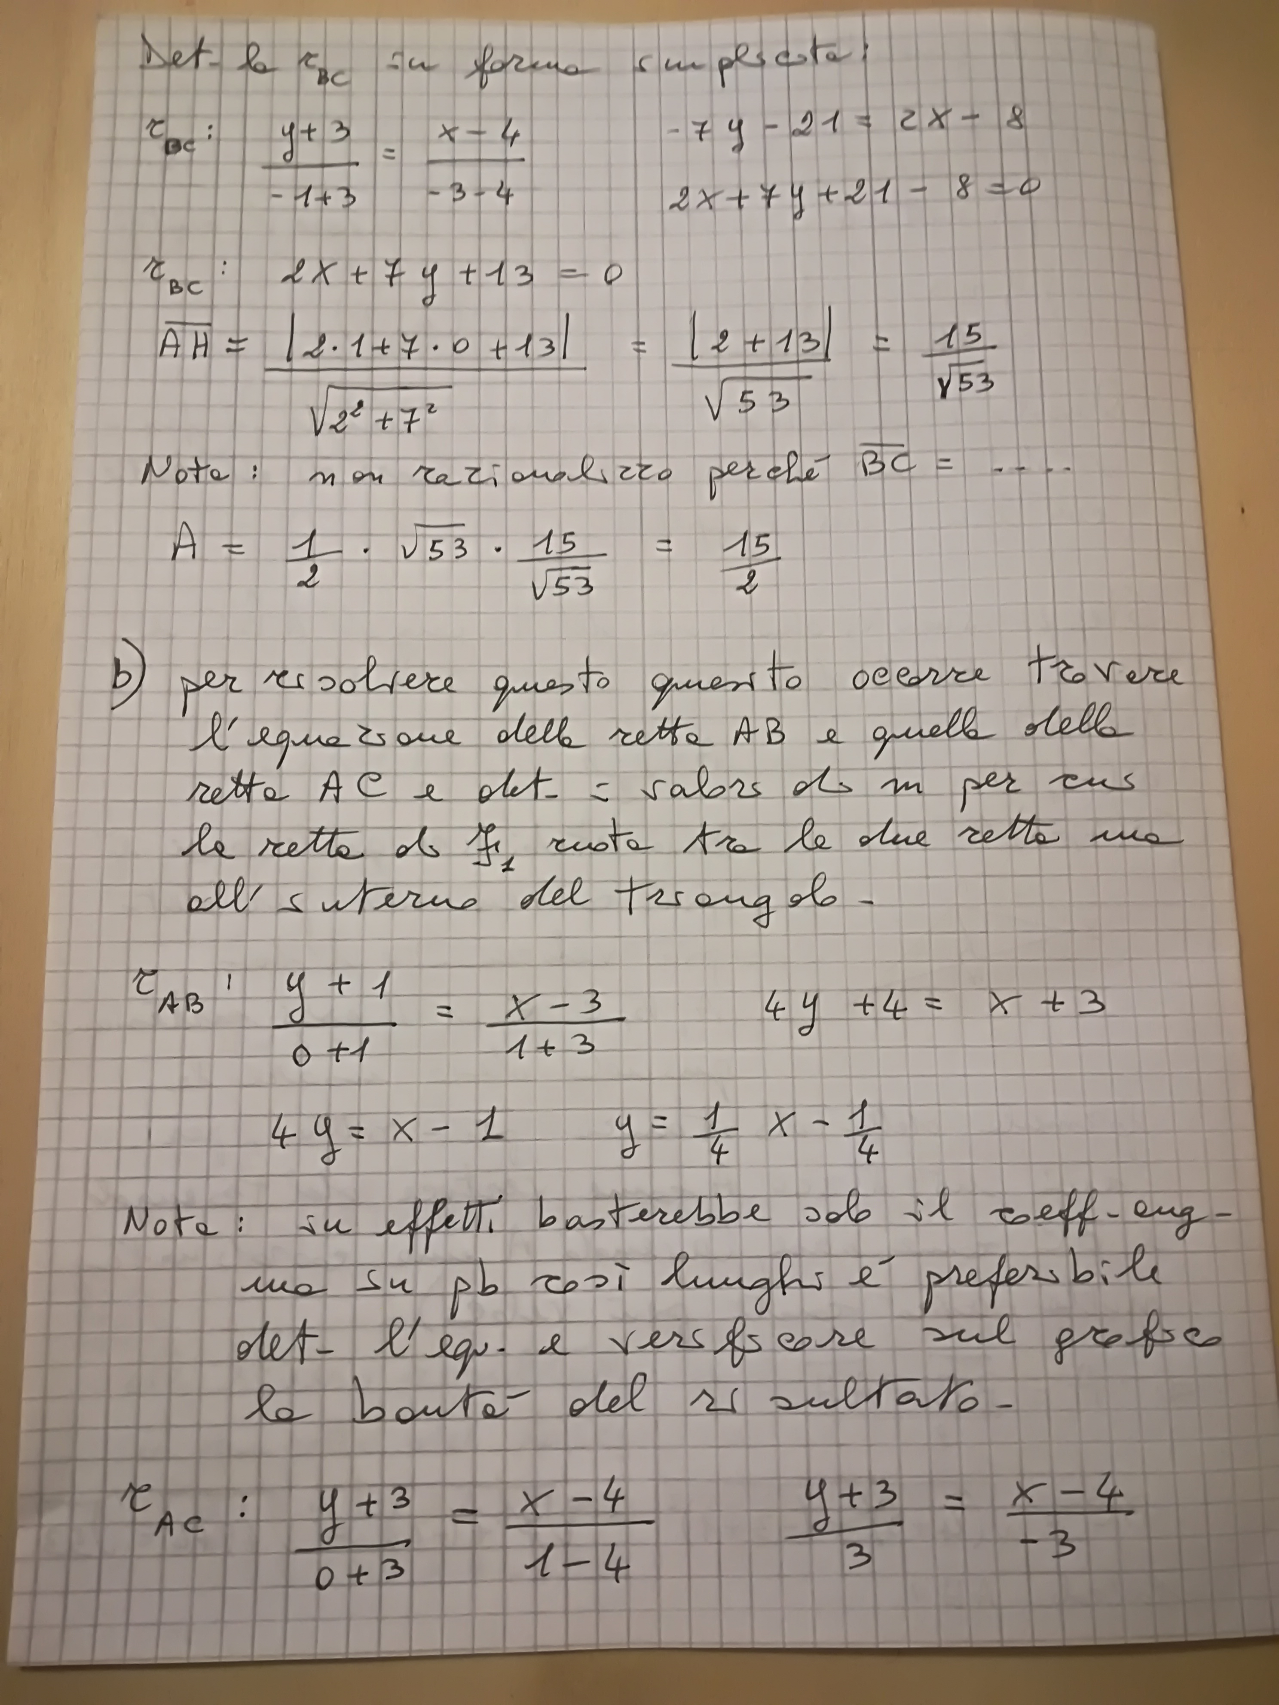 Det. la r_BC in forma implicita:
r_BC: (y+3)/(-1+3) = (x-4)/(-3-4)    -7y-21 = 2x-8
2x+7y+21-8=0
r_BC: 2x+7y+13=0
AH = |2·1+7·0+13|/√(2²+7²) = |2+13|/√53 = 15/√53
Nota: non razionalizzo perché BC = .....
A = 1/2 · √53 · 15/√53 = 15/2
b) per risolvere questo quesito occorre trovare
l'equazione della retta AB e quella della
retta AC e det. i valori di m per cui
la retta di F₁ ruota tra le due rette ma
all'interno del triangolo.
r_AB: (y+1)/(0+1) = (x-3)/(1+3)    4y+4 = x+3
4y = x-1    y = 1/4 x - 1/4
Nota: in effetti basterebbe solo il coeff. ang.
ma in pb così lunghi é preferibile
det. l'eq. e verificare sul grafico
la bontà del risultato.
r_AC: (y+3)/(0+3) = (x-4)/(1-4)    (y+3)/3 = (x-4)/-3